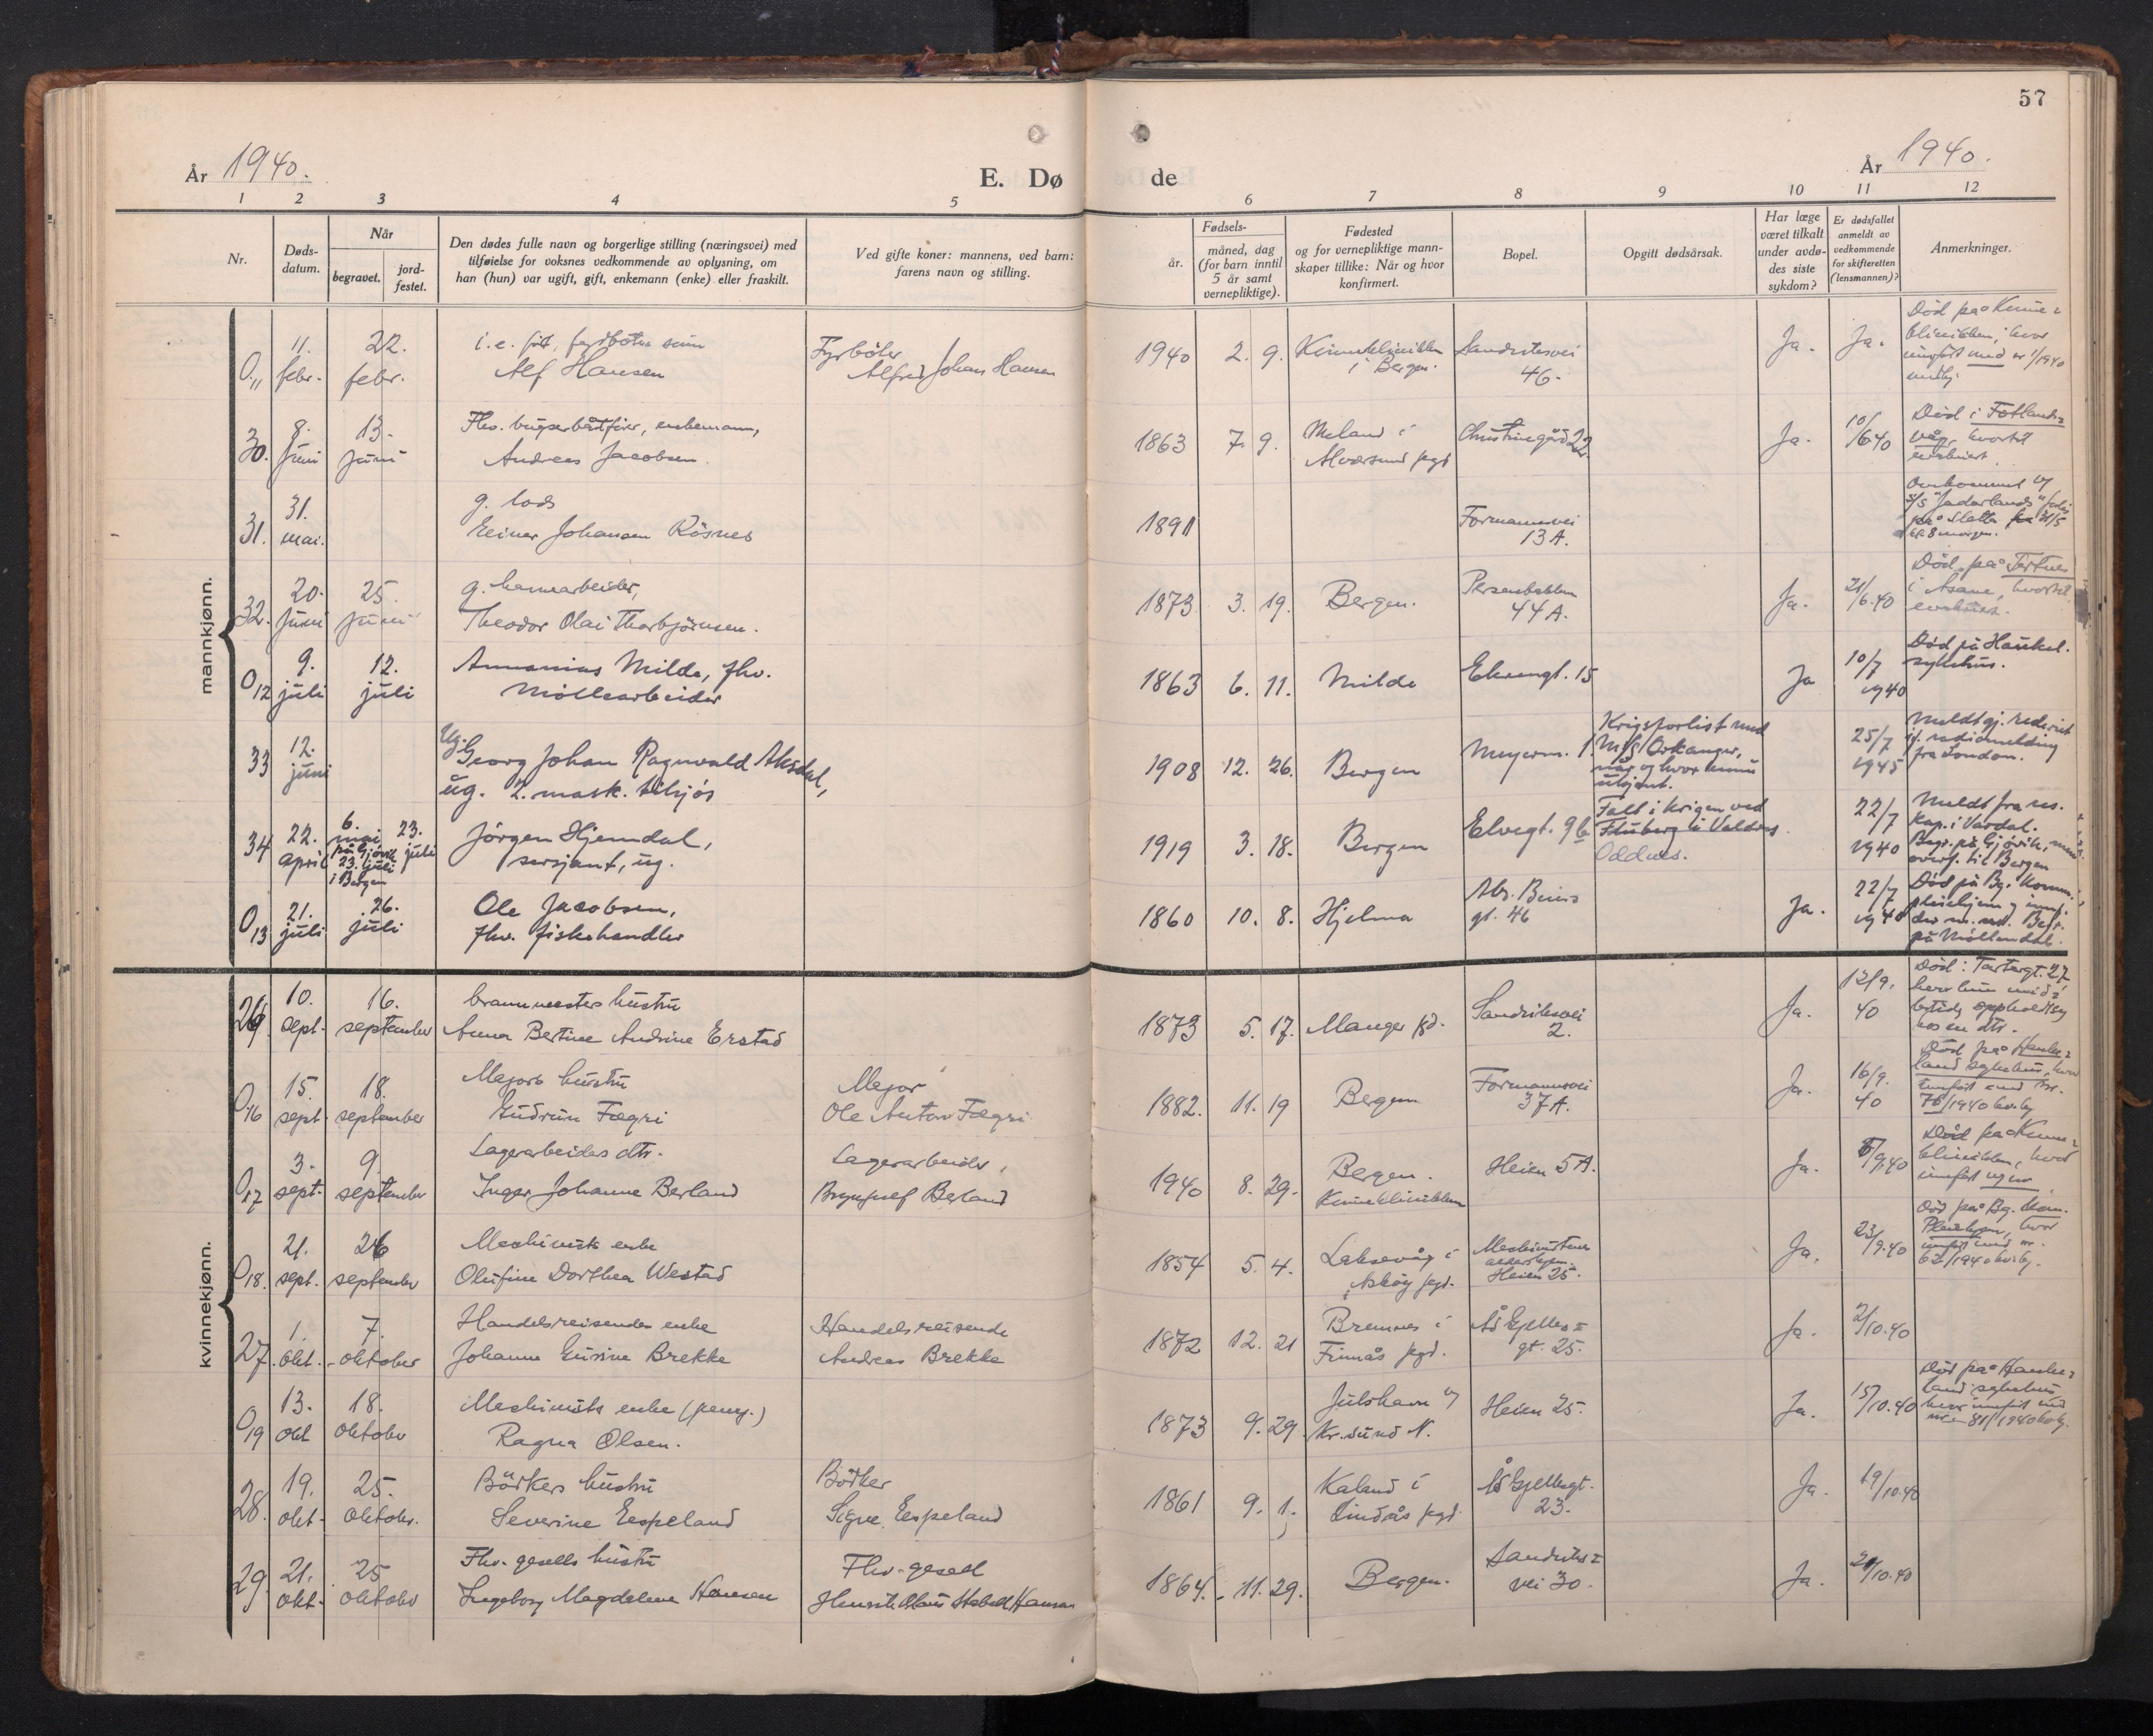 57
År 1940.
E. Dø de
År 1940.
1 2 3 4 5 6 7 8 9 10 11 12
Nr.
Døds-
datum.
Når
begravet.
jord-
festet.
Den dødes fulle navn og borgerlige stilling (næringsvei) med
tilføielse for voksnes vedkommende av oplysning, om
han (hun) var ugift, gift, enkemann (enke) eller fraskilt.
Ved gifte koner: mannens, ved barn:
farens navn og stilling.
Fødsels-
år.
måned, dag
(for barn inntil
5 år samt
vernepliktige).
Fødested
og for vernepliktige mann-
skaper tillike: Når og hvor
konfirmert.
Bopel.
Opgitt dødsårsak.
Har læge
været tilkalt
under avdø-
des siste
sykdom?
Er dødsfallet
anmeldt av
vedkommende
for skifteretten
(lensmannen)?
Anmerkninger.
mannkjønn.
0 11
11. febr.
22. febr.
Alf Hansen
Fyrbøter
Alfred Johan Hansen
1940 2. 9.
Kvinneklinikken
i Bergen.
Sandviksvei
46.
Ja. Ja.
Død på Kvinne=
klinikken, hvor
innført med nr 1/1940
30.
8. juni
13. juni
Fhv. bugserbåtfører, enkemann,
Andreas Jacobsen.
1863 7. 9.
Meland i
Alversund pgd
Christinegård 22.
Ja.
10/6 40
Død i Fotlands=
våg, hvortil
evakuert.
31.
31. mai.
g. lods
Einar Johansen Rösnes
1891
Formannsvei
13 A.
Omkommet v/
S/S "Jadarland's" forlis
på Sletta 31/5
kl. 8 morgen.
32.
20. juni
25. juni
g. havnearbeider,
Theodor Olai Thorbjörnsen.
1873 3. 19.
Bergen.
Persenbakken
44 A.
Ja.
21/6.40
Død på Tertnes
i Åsane, hvortil
evakuert.
0 12
9. juli
12. juli
Annanias Milde, fhv.
møllearbeider
1863 6. 11.
Milde
Ekrengt. 15
Ja
10/7 1940
Død på Haukel.
sykehus.
33
12. juni
Ug.
Georg Johan Ragnvald Aksdal,
ug. 2. mask. tilsjøs
1908 12. 26.
Bergen
Meyerm. 1.
Krigsforlist med
M/S Orkanger,
når og hvor kunne
utsjønt.
25/7 1945
Meldt gj. rederiet
if. radiomelding
fra London.
34
22. april
6. mai
på Gjøvik
23. juli
i Bergen
23. juli
Jörgen Hjemdal,
sersjant, ug.
1919 3. 18.
Bergen
Elvegt. 9 b
Falt i krigen ved
Fluberg i Valdres.
Oddnes.
22/7 1940
Meldt fra res.
kap. i Vardal.
Begr. på Gjövik, men
overf. til Bergen
0 13
21. juli
26. juli
Ole Jacobsen,
fhv. fiskehandler
1860 10. 8.
Hjelma
Abs. Beiers
gt. 46
Ja.
22/7 1940
Død på Bg. Komm.
pleiehjem og innf.
der m. nr. Begr.
på Möllendal.
kvinnekjønn.
26
10. sept.
16. september
branmesters hustru
Anna Bertine Andrine Erstad
1873 5. 17.
Manger pd.
Sandviksvei
2.
Ja.
12/9. 40
Død: Tartargt. 27,
hvor hun mid=
lertidig oppholdt seg
hos en dtr.
0 16
15. sept.
18. september
Majors hustru
Gudrun Fægri
Major
Ole Anton Fægri
1882. 11. 19
Bergen
Formannsvei
37 A.
Ja.
16/9. 40
Død på Hauke=
land sykehus, hvor
innført med nr.
76/1940 kv.kj
0 17
3. sept.
9. september
Lagerarbeiders dtr.
Inger Johanne Berland
Lagerarbeider,
Brynjulf Berland
1940 8. 29.
Bergen.
Kvinneklinikken
Heien 5 A.
Ja.
5/9.40
Død på Kvinne=
klinikken, hvor
innført
0 18.
21. sept.
26 september
Maskinists enke
Olufine Dorthea Westad
1854 5. 4.
Laksevåg i
Askøy pgd.
Maskinistenes
aldershjem.
Heien 25.
Ja.
23/9.40
Død på Bg. Kom.
Pleiehjem, hvor
innført med nr.
62/1940 kv.kj.
27.
1. okt.
7. oktober
Handelsreisendes enke
Johanne Gurine Brekke
Handelsreisende
Andreas Brekke
1872 12. 21
Bremnes i
Finnås pgd.
Ås Gjellos=
gt. 25.
Ja.
2/10.40
0 19
13. okt
18. oktober
Maskinists enke (pens.)
Ragna Olsen.
1873 9. 29.
Julshavn v/
Kr.sund N.
Heien 25.
Ja.
15/10.40
Død på Hauke=
land sykehus
hvor innført med
nr. 81/1940 kv.kj.
28.
19. okt.
25. oktober.
Bödkers hustru
Severine Espeland
Bödker
Sigve Espeland
1861 9. 1.
Kaland i
Lindås pgd.
23.
Ja.
19/10.40
29.
21. okt.
25 oktober
Fhv. gesells hustru
Ingeborg Magdalene Hansen
Fhv. gesell
Henrik Olaus Stabell Hansen
1864. 11. 29.
Bergen.
Sandviks=
vei 30.
Ja.
21/10.40